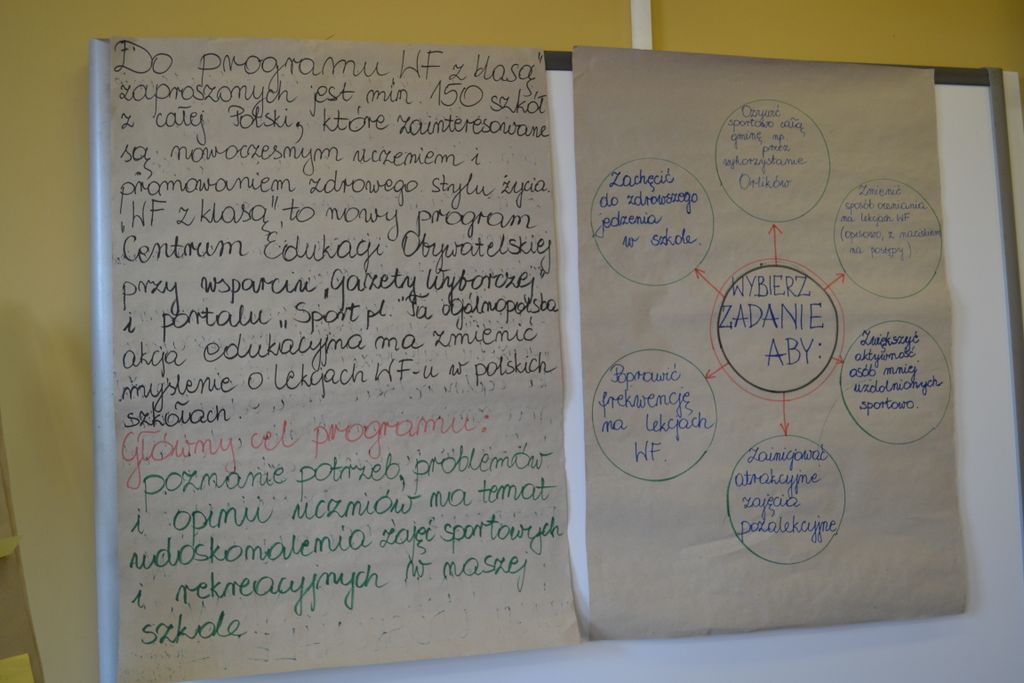 Do programu „WF z klasą”
zaproszonych jest min. 150 szkół
z całej Polski, które zainteresowane
są nowoczesnym uczeniem i
promowaniem zdrowego stylu życia.
„WF z klasą” to nowy program
Centrum Edukacji Obywatelskiej
przy wsparciu „Gazety Wyborczej”
i portalu „Sport.pl.” Ta ogólnopolska
akcja edukacyjna ma zmienić
myślenie o lekcjach WF-u w polskich
szkołach.
Główny cel programu:
poznanie potrzeb, problemów
i opinii uczniów na temat
udoskonalenia zajęć sportowych
i rekreacyjnych w naszej
szkole
WYBIERZ
ZADANIE
ABY:
Ożywić
sportowo całą
gminę np.
przez
wykorzystanie
Orlików
Zmienić
sposób oceniania
na lekcjach WF
(opisowo, z naciskiem
na postępy)
Zwiększyć
aktywność
osób mniej
uzdolnionych
sportowo.
Zainicjować
atrakcyjne
zajęcia
pozalekcyjne
Poprawić
frekwencję
na lekcjach
WF.
Zachęcić
do zdrowszego
jedzenia
w szkole.